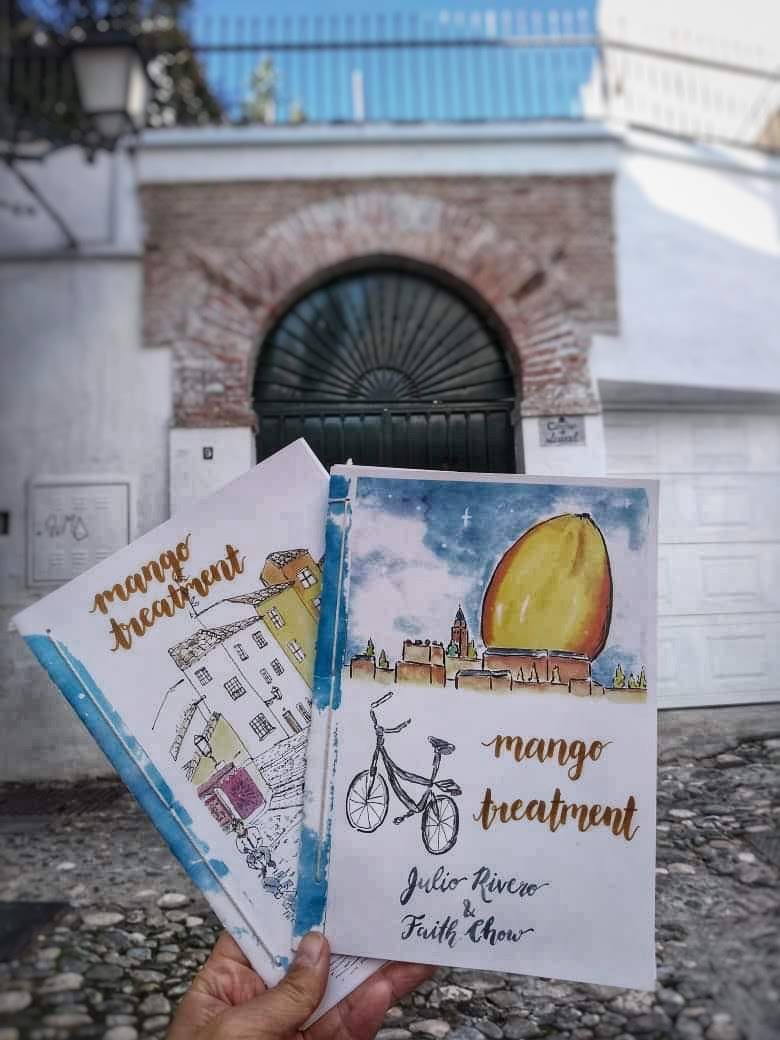 mango
treatment
mango
treatment
Julio Rivero
&
Faith Chow
9